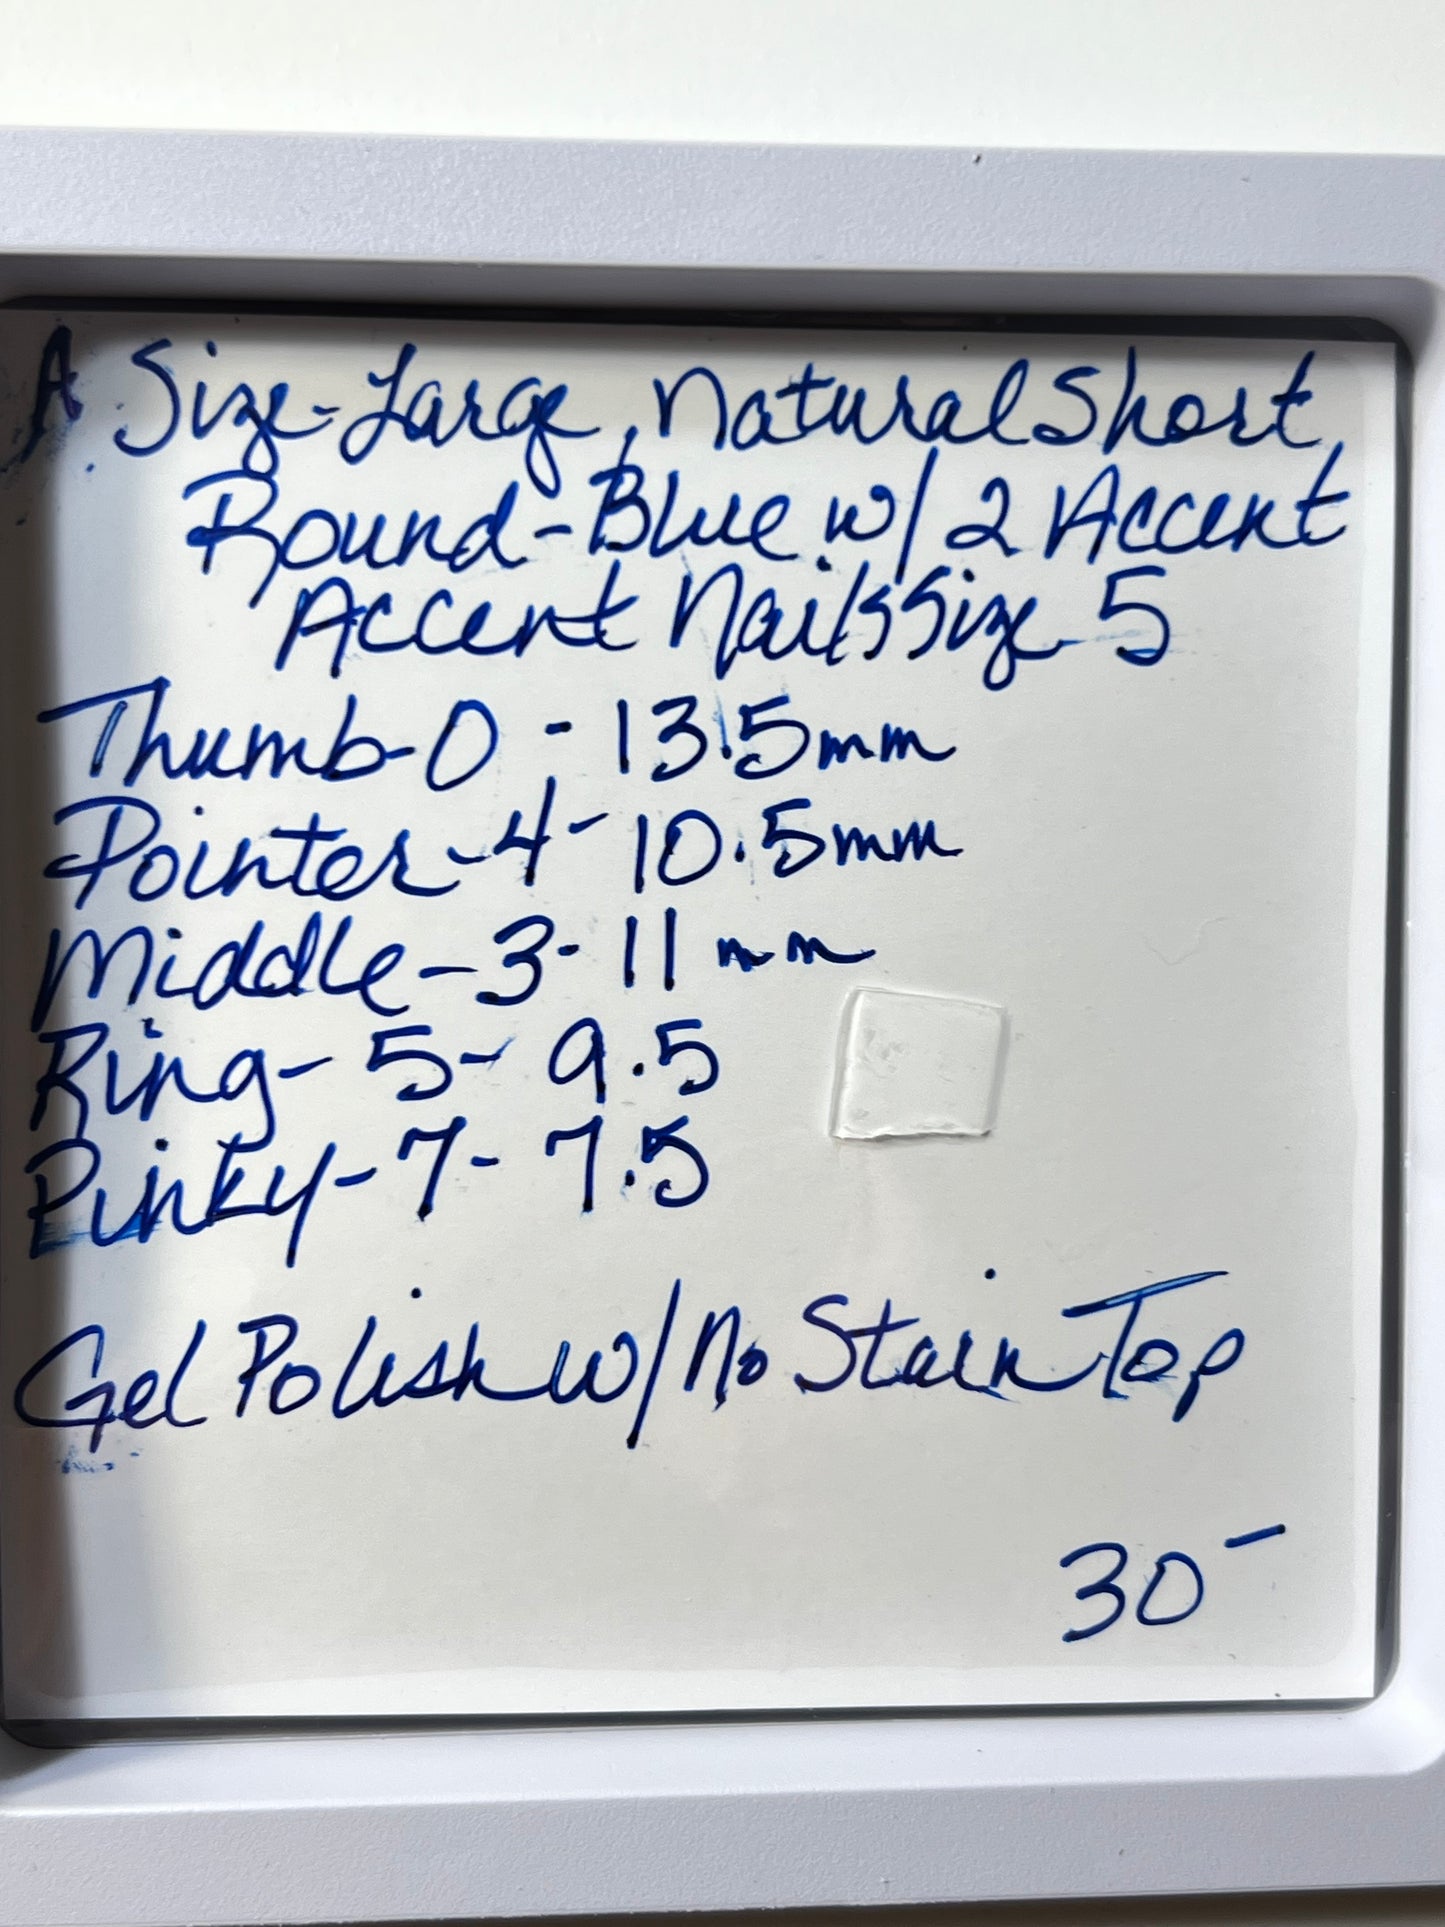 A. Size-Large, Natural Short,
Round-Blue w/ 2 Accent
Accent Nails Size 5
Thumb-0 - 13.5mm
Pointer-4-10.5mm
Middle-3-11mm
Ring-5-9.5
Pinky-7-7.5
Gel Polish w/ No Stain Top
30-